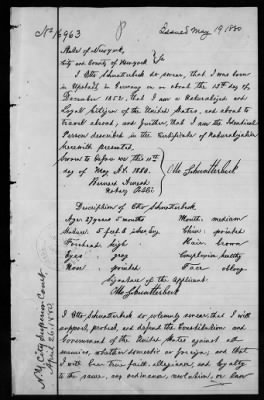 No 16963 Issued May 19 1880
State of New York,
City and County of New York } ss
I Otto Schwatterbeck do swear, that I was born
in            in Germany on or about the 13th day of
December 1852, that I am a Naturalized and
Loyal Citizen of the United States, and about to
travel abroad, and further that I am the Identical
Person described in the Certificate of Naturalization
herewith presented.
Sworn to before me this 11th
day of May A.D. 1880. Otto Schwatterbeck
Bernard
Notary Public
Description of Otto Schwatterbeck
Age: 27 years 5 months Mouth: medium
Stature: 5 feet 6 inches Eng Chin: pointed
Forehead: high Hair: brown
Eyes: gray Complexion: healthy
Nose: pointed Face: oblong
Signature of the Applicant:
Otto Schwatterbeck
I Otto Schwatterbeck do solemnly swear, that I will
support, protect, and defend the Constitution and
Government of the United States against all
enemies, whether domestic or foreign; and that
I will bear true faith, allegiance, and loyalty
to the same, any ordinance, resolution, or law
N.Y. City Superior Court,
April 26, 1880.